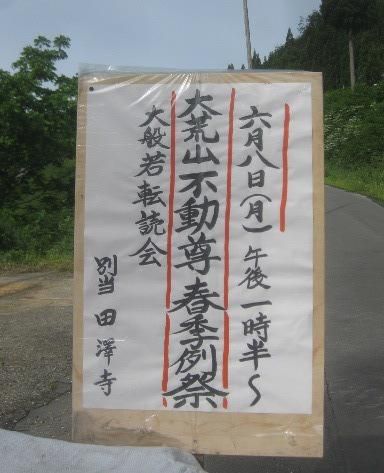 六月八日(月)午後一時半～
大荒山不動尊春季例祭
大般若転読会
別当田澤寺